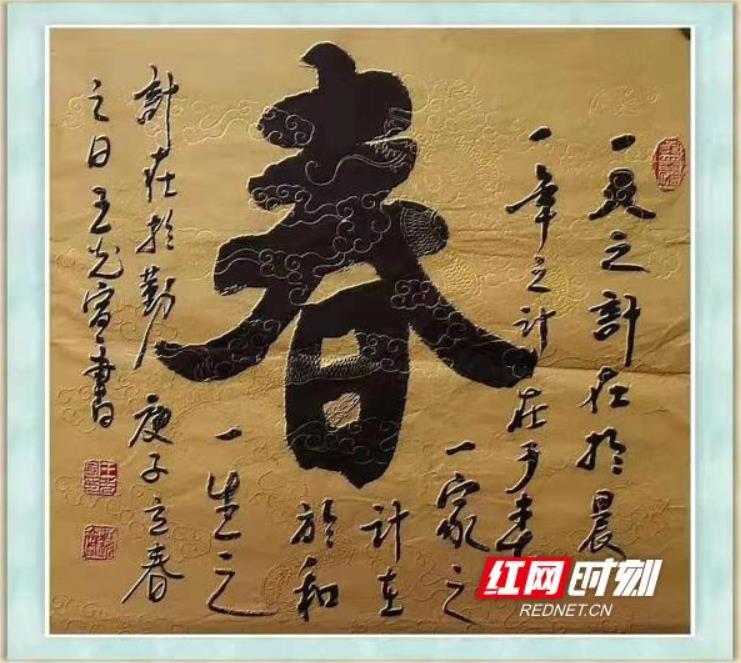 一之計在於晨
一年之计在于春
一家之
计在
於和
春
一生之
計在於勤 庚子立春
之日王光書
红网时刻
REDNET.CN